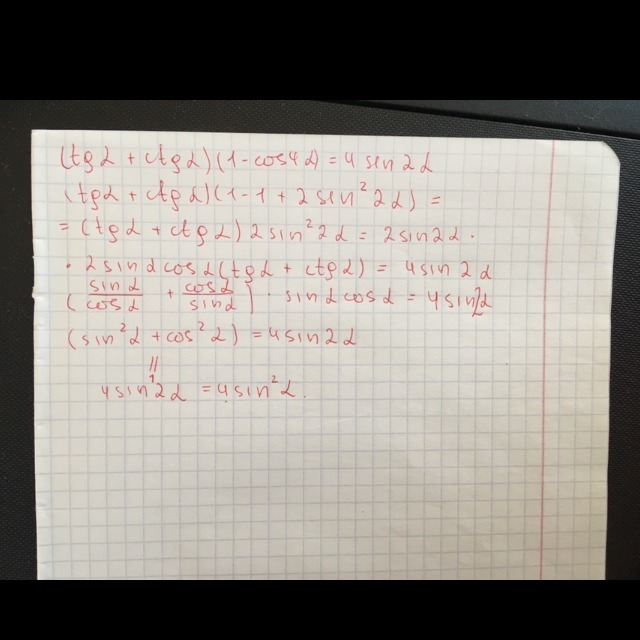 (tgα + ctgα)(1-cos4α) = 4sin2α
(tgα + ctgα)(1-1 + 2sin²2α) =
= (tgα + ctgα)2sin²2α = 2sin2α ·
· 2sinαcosα(tgα + ctgα) = 4sin2α
(sinα/cosα + cosα/sinα) · sinαcosα = 4sin2α
(sin²α + cos²α) = 4sin2α
||
1
4sin2α = 4sin²α.